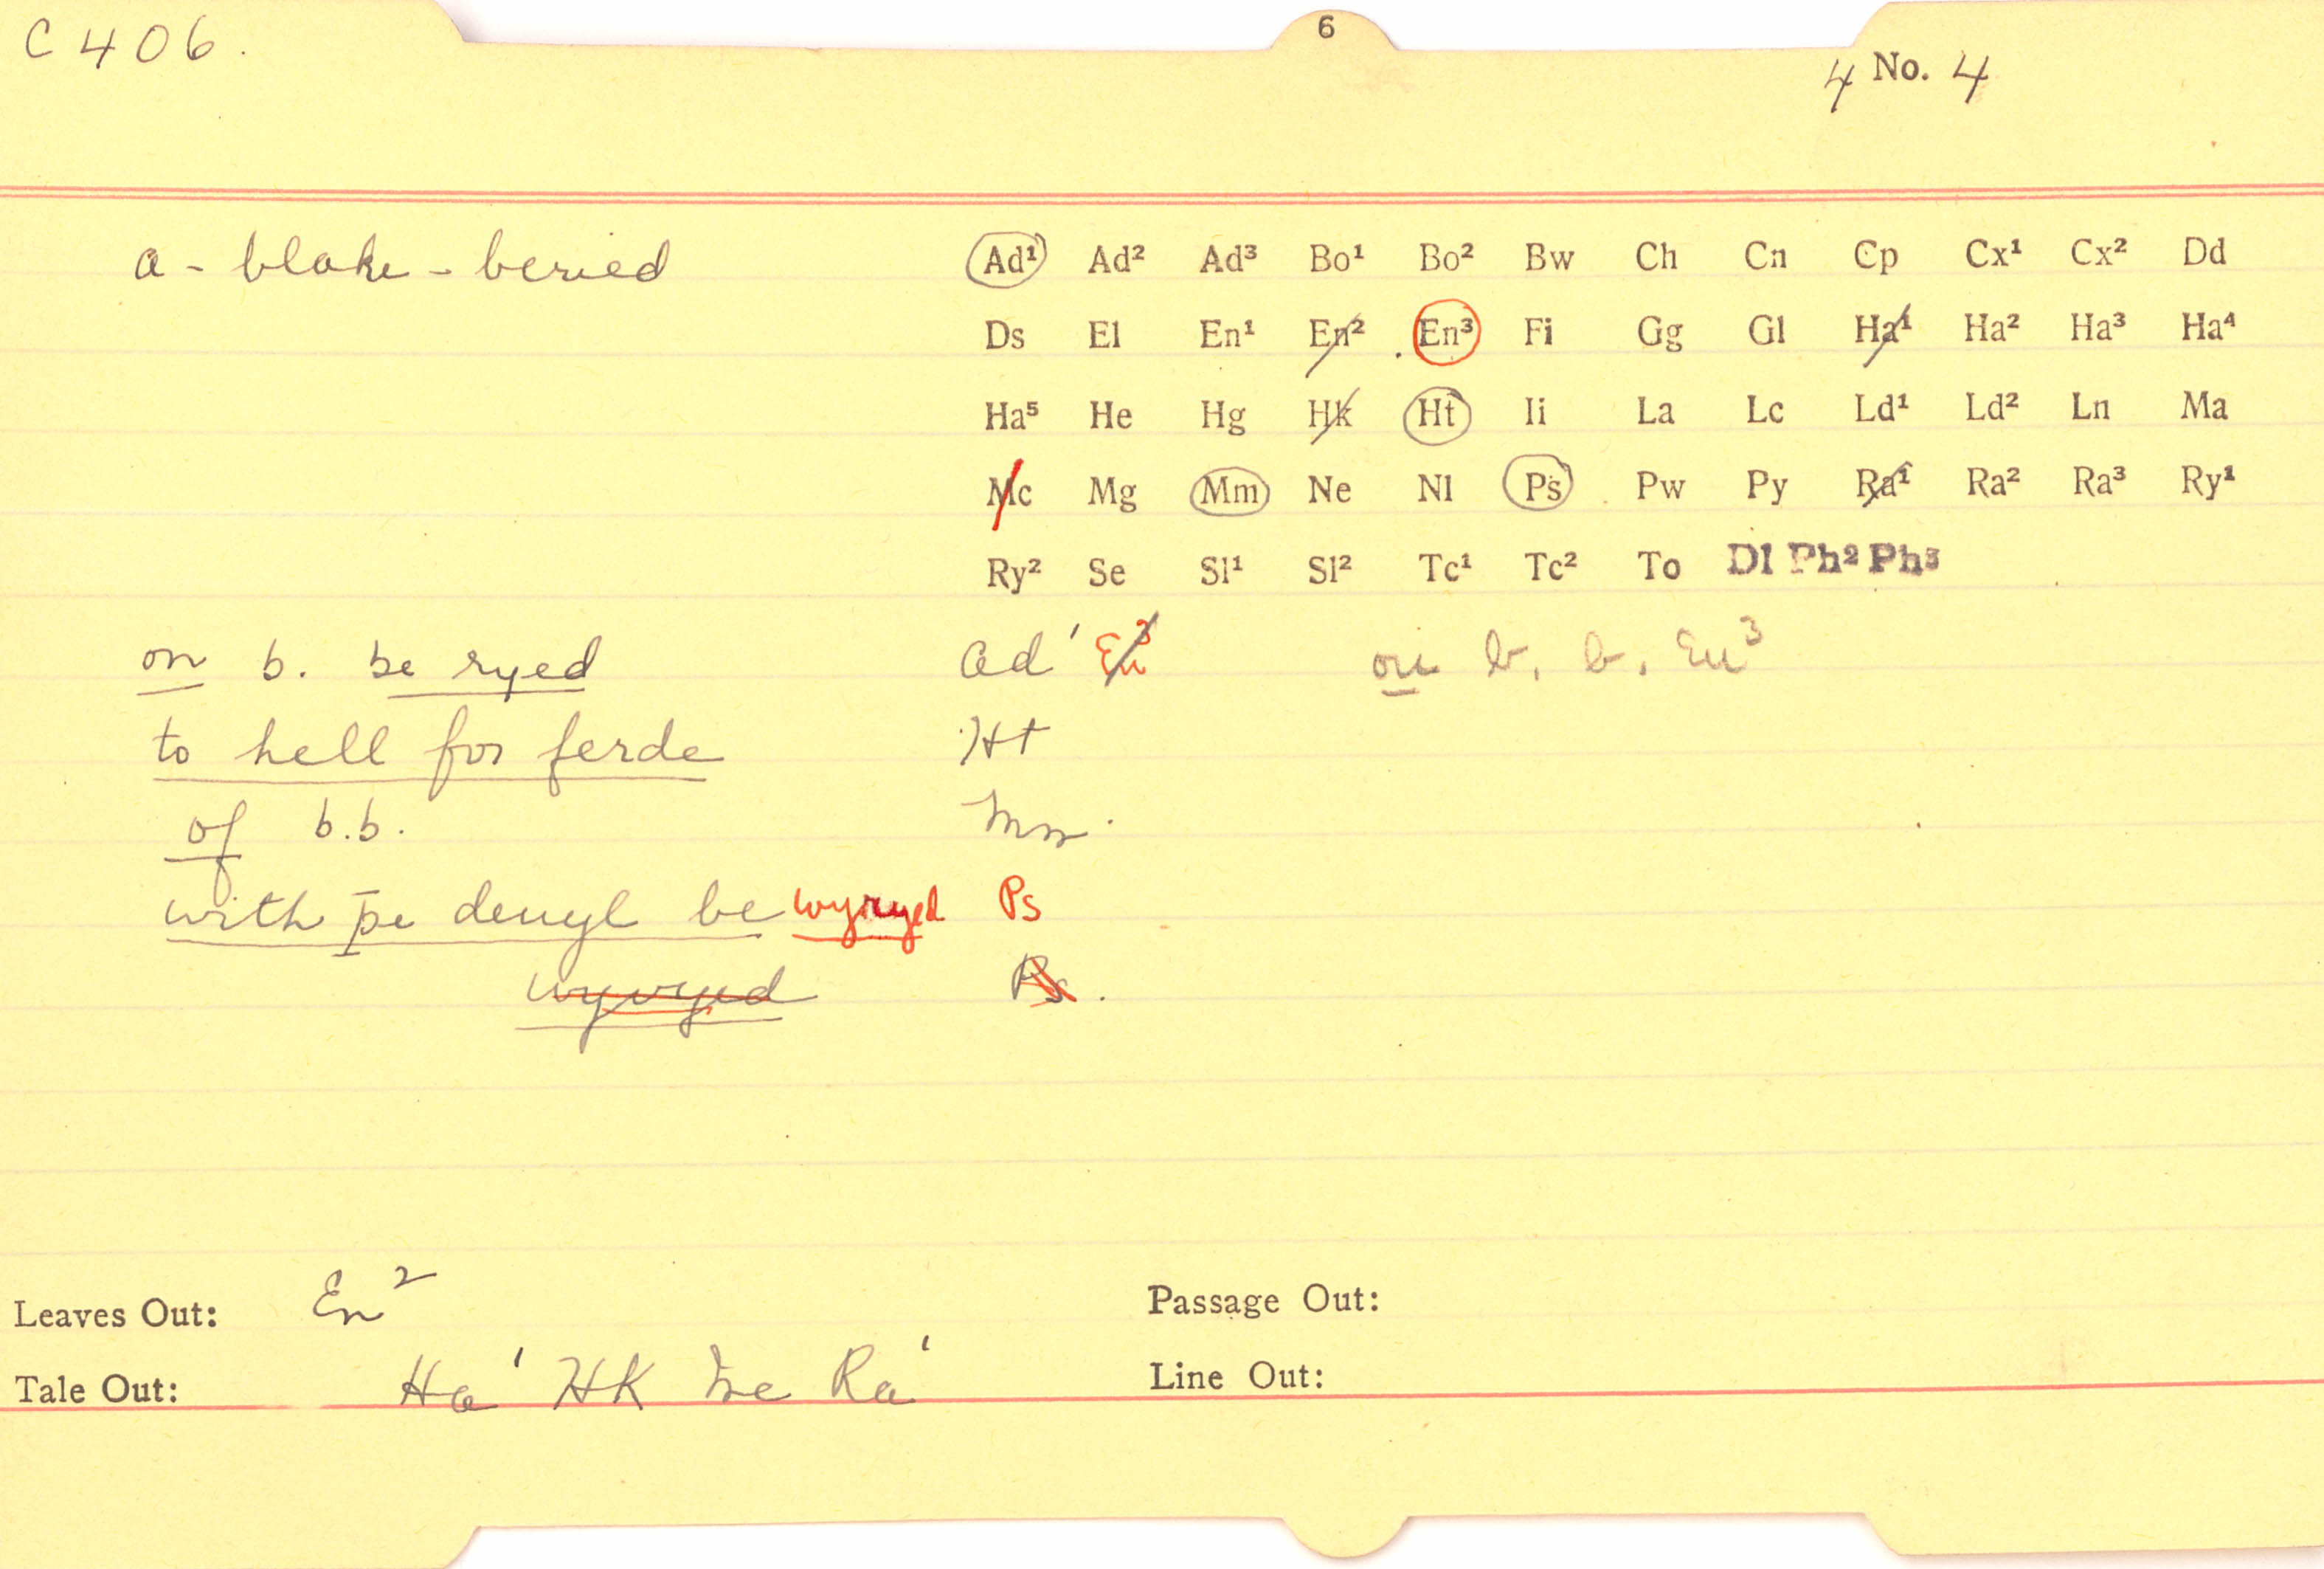 C 406.
6
4 No. 4
a - blake - beried
Ad¹ Ad² Ad³ Bo¹ Bo² Bw Ch Cn Cp Cx¹ Cx² Dd
Ds El En¹ En² En³ Fi Gg Gl Ha¹ Ha² Ha³ Ha⁴
Ha⁵ He Hg Hk Ht Ii La Lc Ld¹ Ld² Ln Ma
Mc Mg Mm Ne Nl Ps Pw Py Ra¹ Ra² Ra³ Ry¹
Ry² Se Sl¹ Sl² Tc¹ Tc² To Dl Ph² Ph³
on b. be ryed Ad¹ En³ on b. b. En³
to hell for ferde Ht
of b.b. Mm.
with þe deuyl be wyryed Ps
wyryed Ps.
Leaves Out: En² Passage Out:
Tale Out: Ha¹ HK Mc Ra¹ Line Out: